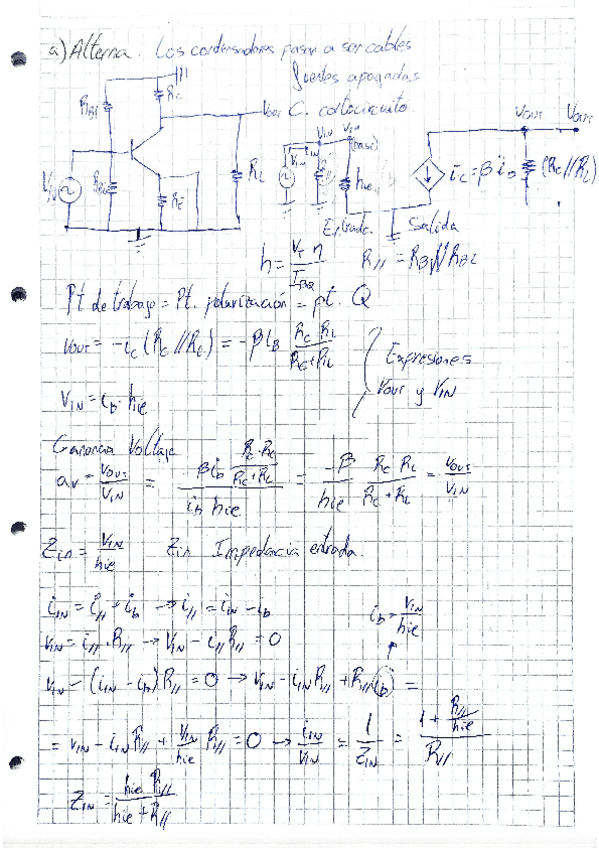 a) Alterna. Los condensadores pasan a ser cables
fuentes apagadas
C. cortocircuito.
RB1
RC
VOUT
VIN
RE
RL
VIN
iIN
VIN
VIN
(base)
hie
iC = β ib
VOUT
VOUT
(RC//RL)
Entrada
Salida
h = VT η / IBQ
R// = RB1//RB2
Pt de trabajo = Pt. polarización = pt. Q
VOUT = -iC (RC//RL) = -β iB RC RL / RC+RL
Expresiones
VOUT y VIN
VIN = ib · hie
Ganancia Voltaje
av = VOUT / VIN = -β ib RC·RL / RC+RL / ib hie = -β / hie RC RL / RC+RL = VOUT / VIN
Zin = VIN / hie Zin Impedancia entrada
iIN = i// + ib → i// = iIN - ib
ib = VIN / hie
VIN = i// · R// → VIN - i// R// = 0
VIN - (iIN - ib) R// = 0 → VIN - iIN R// + R// (ib) =
= VIN - iIN R// + VIN / hie R// = 0 → iIN / VIN = 1 / ZIN = 1 + R// / hie / R//
ZIN = hie R// / hie + R//